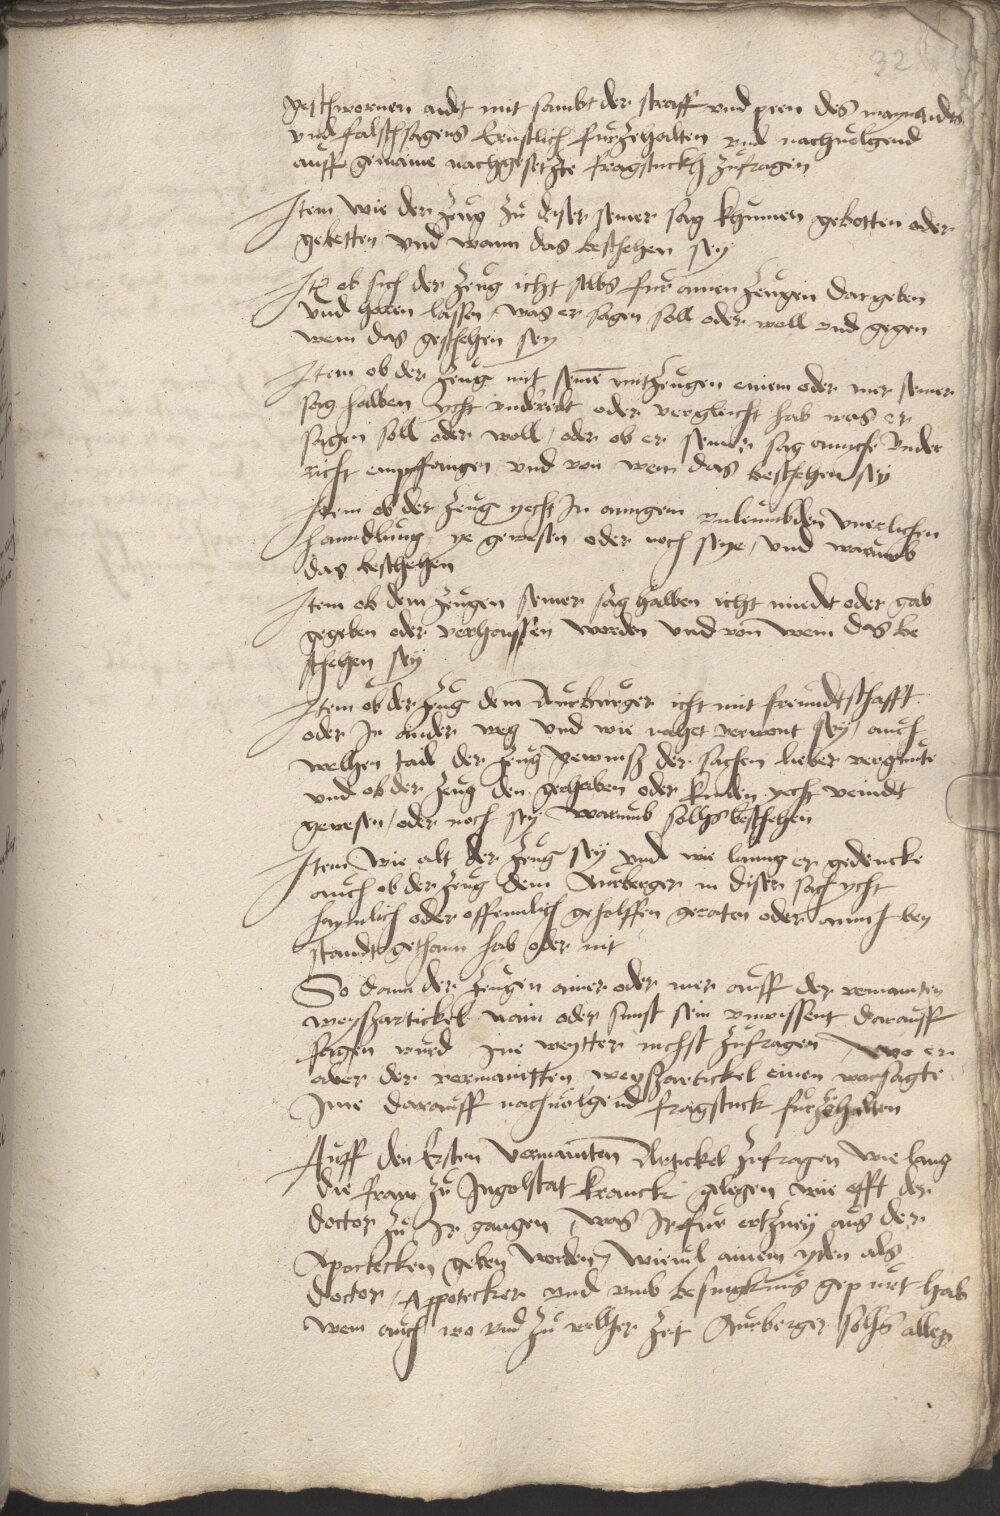 32
geschwornen aidt mit sambt der straff vnd peen des maynaidts
vnd falschsagens Ernstlich furzehalten vnd nachuolgend
auff gemaine nachgesetzte fragstuckh zufragen
Item wie der zeug zu diser seiner sag khumen gebotten oder
gebetten vnd wann das beschehen sey
Itm ob sich der zeug icht selbs fur ainen zeugen dargeben
vnd horen lassen was er sagen soll oder woll vnd gegen
wem das geschehen sey
Item ob der zeug mit seine mitzeugen einem oder mer seiner
sag halben ycht vnderredt oder verglicht hab was er
sagen soll oder woll / oder ob er seiner sag ainich vnder
richt empfangen vnd von wem das beschehen sey
Item ob der zeug yecht In ainigem vnleumbden vnerlichen
hanndlung ye gewesen oder noch seye / vnd warumb
das beschehen
Item ob dem zeugen seiner sag halben icht miedt oder gab
gegeben oder verhaissen worden vnd von wem das be
schehen sey
Item ob der zeug dem Aurburger icht mit freundtschafft
oder In ander weg vnd wie nahet verwont sey / auch
welhen tail der zeug gewinss der sachen lieber vergunte
vnd ob der zeug den gerhaben oder kinden yecht veindt
gewesen / oder noch sey warumb sollhs beschehen
Item wie alt der zeug sey vnd wie lanng er gedencke
auch ob der zeug dem Aurberger in diser sach ycht
haymlich oder offennlich geholffen geraten oder ainich bey
standt gethann hab oder nit
So dann der zeugen ainer oder mer auff der vermainten
weyssartickel nain oder sunst sein vnwissent darauff
sagen wurd Ine weytter nichst zufragen / wo er
aber der vermainten weyssartickel einen warsagte
Ine darauff nachuolgend fragstuck furzehalten
Auff den Ersten vermainten Artickel zufragen wie lang
die fraw zu Ingolstat kranck gelegen wie offt der
doctor zu Ir gangen was Ir fur ertzney aus der
Apoctecken geben worden / wieuil ainem yden als
doctor / Appotecker vnd vmb besingknus gepurt hab
wem auch wo vnd zu welher zeit Aurberger solhs alles